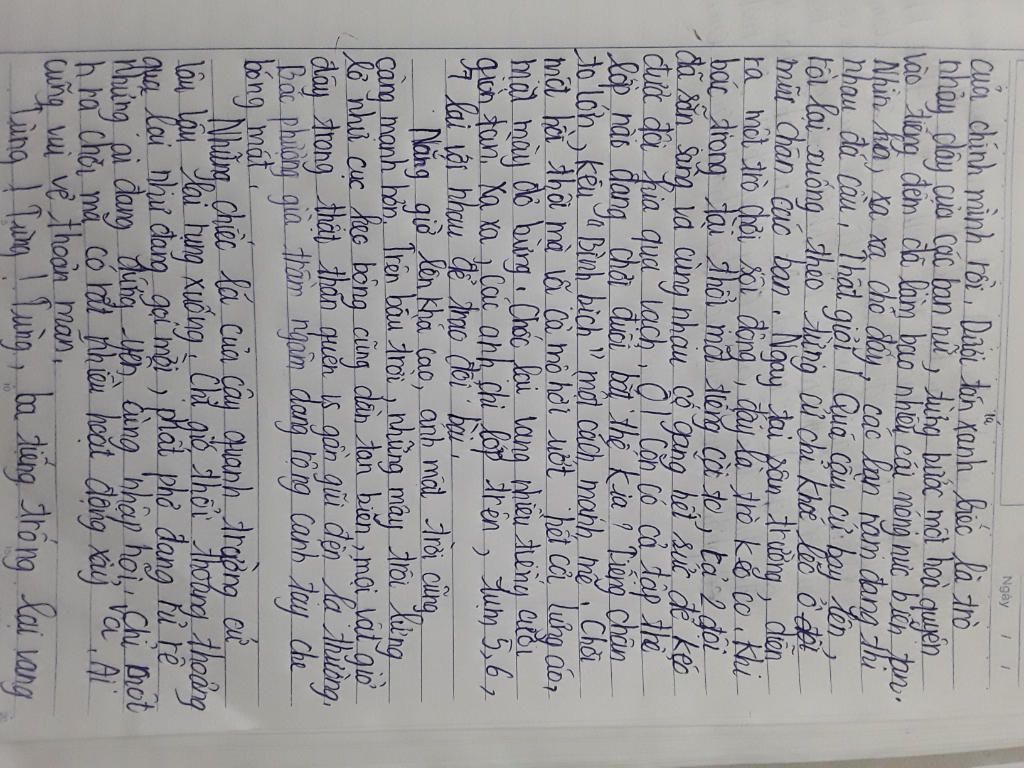 Ngày / /
của chính mình rồi. Dưới tán xanh biếc là trò
nhảy dây của các bạn nữ, từng bước một hoà quyện
vào tiếng đếm đã làm bao nhiêu cái nóng nực biến tan.
Nhìn kìa, xa xa chỗ đấy, các bạn nam đang thi
nhau đá cầu. Thật giỏi! Quả cầu cứ bay lên,
rồi lại xuống theo từng cử chỉ khéo léo ở đôi
mũi chân các bạn. Ngay tại sân trường, diễn
ra một trò chơi sôi động, đấy là trò kéo co. Khi
bác trọng tài thổi một tiếng còi to, cả 2 đội
đã sẵn sàng và cùng nhau cố gắng hết sức để kéo
được đội kia qua vạch. Ồ! Còn có cả tập thể
lớp nào đang chơi đuổi bắt thế kia? Tiếng chân
to lớn, kêu "Bình bịch" một cách mạnh mẽ. Chơi
một hồi thôi mà vã cả mồ hôi ướt hết cả lưng áo,
mặt mày đỏ bừng. Chốc lại vang nhiều tiếng cười
giòn tan. Xa xa, các anh chị lớp trên, túm 5,6,
7 lại với nhau để trao đổi bài.
Nắng giờ lên khá cao, ánh mặt trời cũng
càng mạnh hơn. Trên bầu trời, những mây trôi lững
lờ như cục kẹo bông cũng dần tan biến, mọi vật giờ
đây trong thật thân quen và gần gũi đến lạ thường.
Bác phượng già thầm ngâm dang rộng cánh tay che
bóng mát.
Những chiếc lá của cây quanh trường cứ
lâu lâu lại rung xuống. Chị gió thổi thoang thoảng
qua lại như đang gọi mời, phất phơ đang rủ rê
những ai đang đứng yên cùng nhập hội. Chỉ một
h ra chơi mà có rất nhiều hoạt động xảy ra. Ai
cũng vui vẻ thoả mãn.
Tùng! Tùng! Tùng, ba tiếng trống lại vang